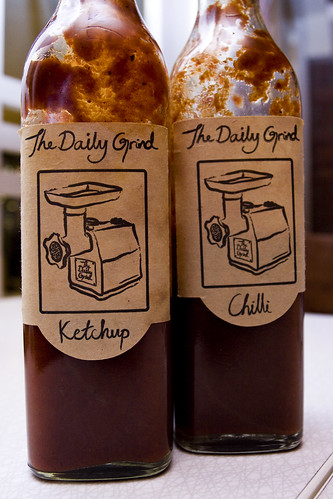 The Daily Grind
The
Daily
Grind
Ketchup
The Daily Grind
The
Daily
Grind
Chilli